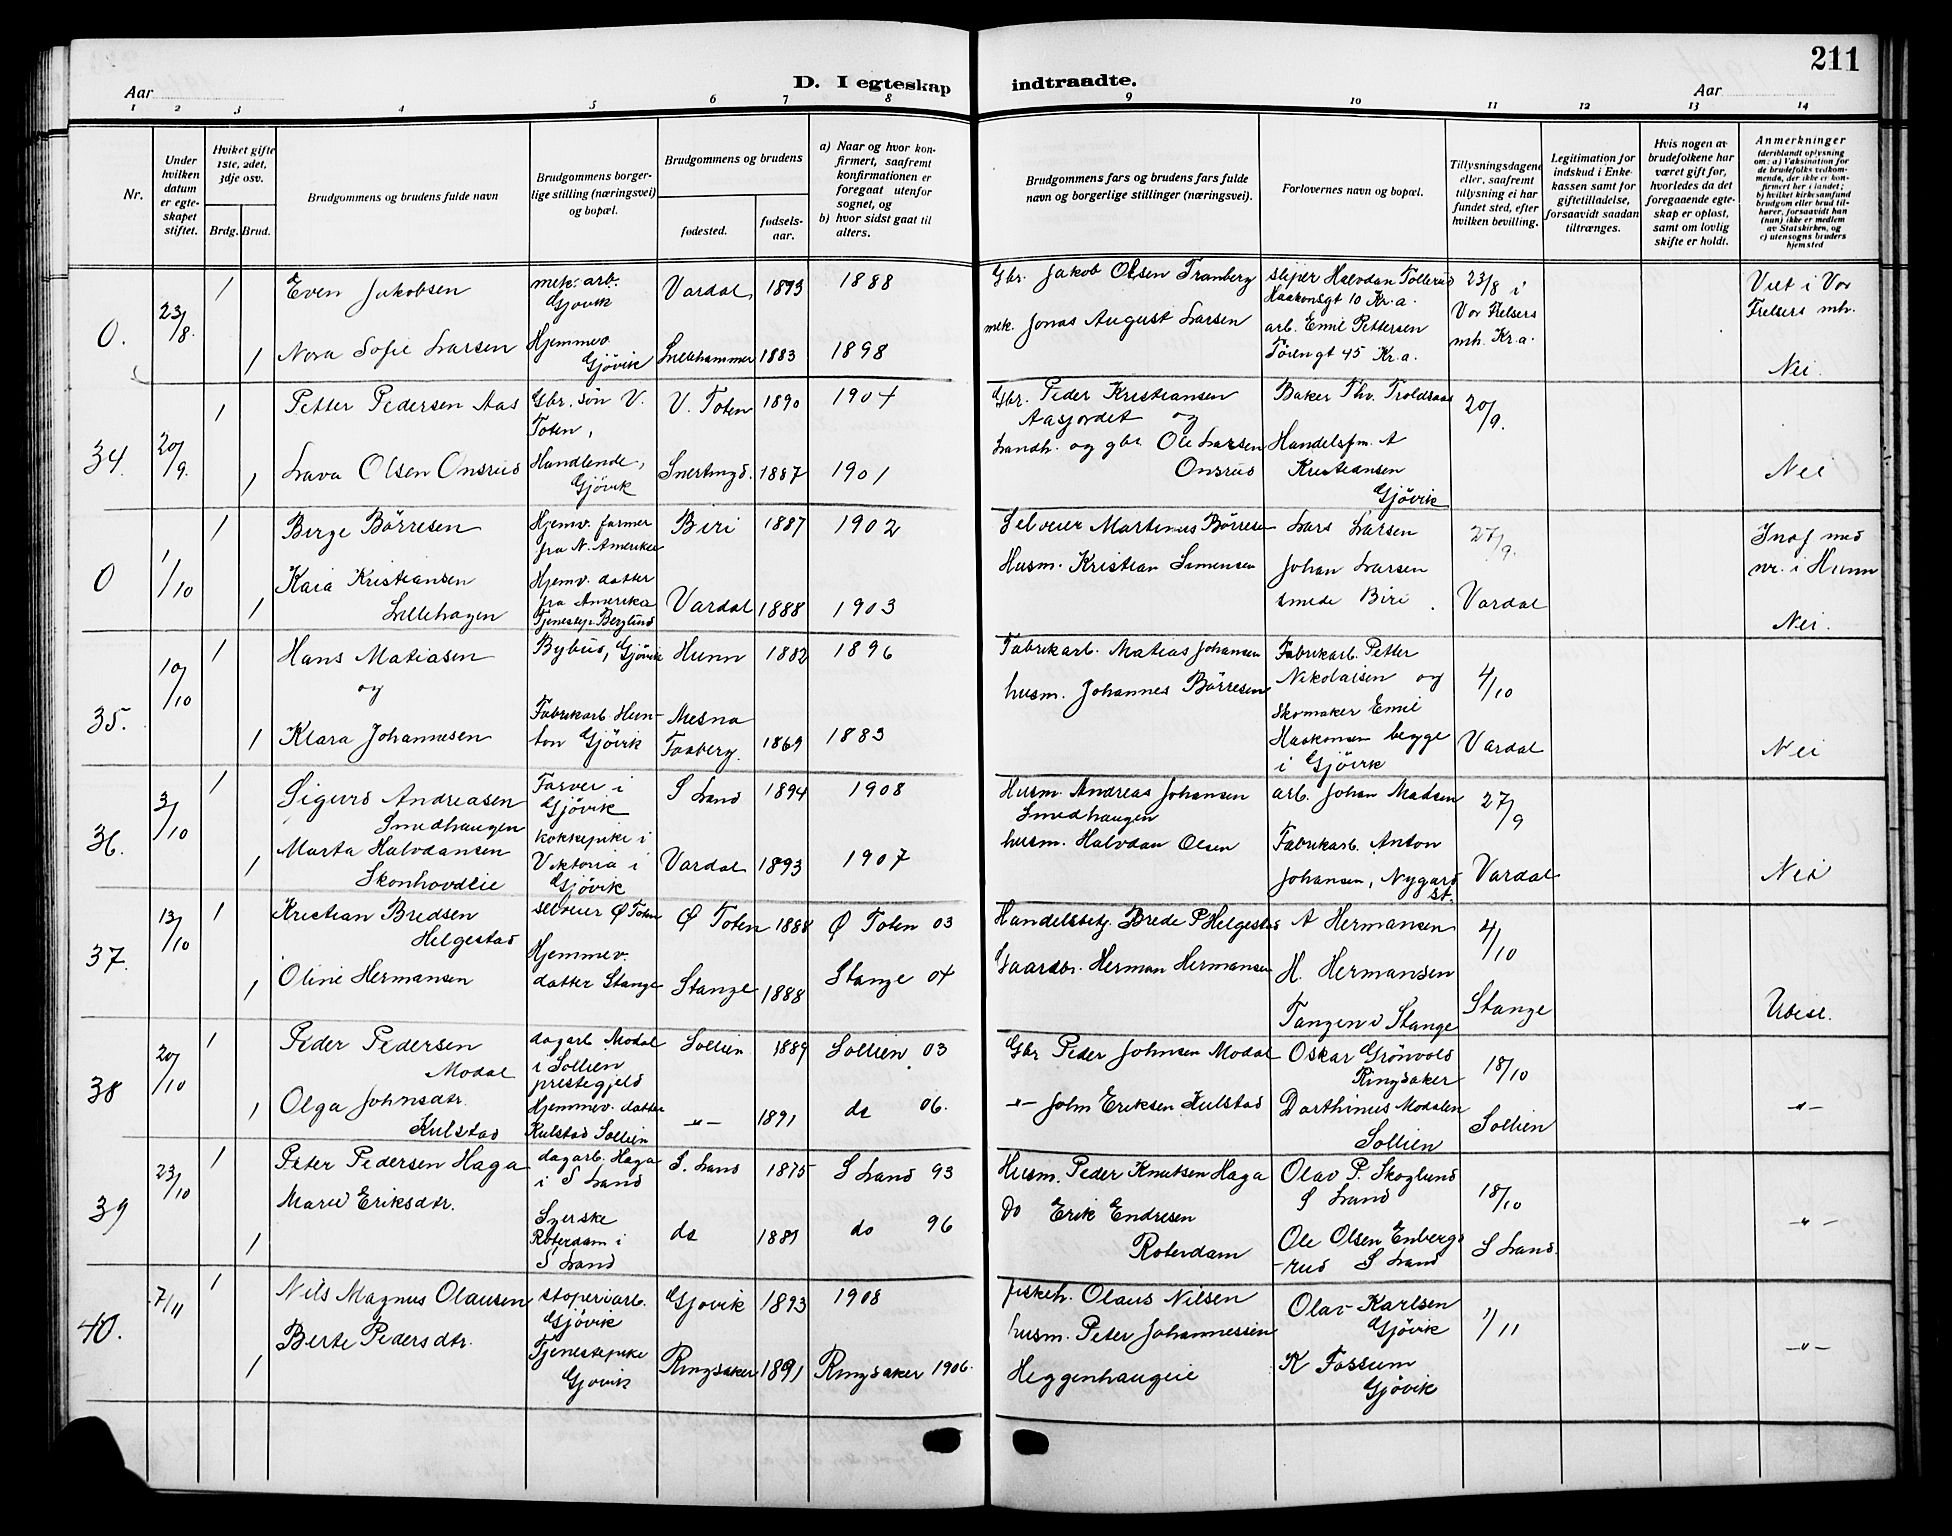 211
Aar
D. I egteskap
indtraadte.
Aar
1 2 3 4 5 6 7 8 9 10 11 12 13 14
Nr.
Under hvilken datum er egteskapet stiftet.
Hvilket gifte 1ste, 2det, 3dje osv.
Brdg. Brud.
Brudgommens og brudens fulde navn
Brudgommens borgerlige stilling (næringsvei) og bopæl.
Brudgommens og brudens
fødested.
fødselsaar.
a) Naar og hvor konfirmert, saafremt konfirmationen er foregaat utenfor sognet, og
b) hvor sidst gaat til alters.
Brudgommens fars og brudens fars fulde navn og borgerlige stillinger (næringsvei).
Forlovernes navn og bopæl.
Tillysningsdagene eller, saafremt tillysning ei har fundet sted, efter hvilken bevilling.
Legitimation for indskud i Enkekassen samt for giftetilladelse, forsaavidt saadan tiltrænges.
Hvis nogen av brudefolkene har været gift før, hvorledes da det foregaaende egteskap er opløst, samt om lovlig skifte er holdt.
Anmerkninger (deriblandt oplysning om: a) Vaksination for de brudefolks vedkommende, der ikke er konfirmert her i landet; b) hvilket kirkesamfund brudgom eller brud tilhører, forsaavidt han (hun) ikke er medlem av Statskirken, og c) utensogns bruders hjemsted
0. 23/8. 1 Even Jakobsen mek. arb. Gjøvik Vardal 1873 1888 Gbr. Jakob Olsen Tranberg Halvdan Tollerud Haakonsgt 10 Kr.a. 23/8 i Vor Frelsers mh. Kr.a. Viet i Vor Frelsers mh.
1 Nora Sofie Larsen Hjemmev. Gjøvik Lillehammer 1883 1898 mek. Jonas August Larsen arb. Emil Pettersen Tøiengt 45 Kr.a. Nei.
34. 20/9. 1 Petter Pedersen Aas Gbr. søn V. Toten, V. Toten 1890 1904 Gbr. Peder Kristiansen Aasjordet og Baker Thv. Troldraas 20/9.
1 Lava Olsen Onsrud Handlende, Gjøvik Snertingd. 1887 1901 Landh. og gbr. Ole Larsen Onsrud Handelsfm. A Kristiansen Gjøvik Nei
0 1/10 1 Berge Börresen Hjemv. farmer fra N. Amerika Biri 1887 1902 Selveier Martinus Börresen Lars Larsen 27/9. Inaf med nr. i Hunn
1 Kaia Kristiansen Lillehagen Hjemv. datter fra Amerika Tjenestep. Berglund Vardal 1888 1903 Husm. Kristian Simensen Johan Larsen smede Biri. Vardal Nei.
35. 10/10 1 Hans Matiasen og Bybud, Gjøvik Hunn 1882 1896 Fabrikarb. Matias Johansen Fabrikarb. Petter Nikolaisen og 4/10
1 Klara Johannesen Fabrikarb. Hunton Gjøvik Mesna Faaberg. 1869 1883 husm. Johannes Börresen Skomaker Emil Haakonsen begge i Gjøvik Vardal Nei
36. 3/10 1 Sigurd Andreasen Smedhaugen Farver i Gjøvik S Land 1894 1908 Husm. Andreas Johansen Smedhaugen arb. Johan Madsen 27/9
1 Marta Halvdansen Skonhovdeie kokkepike i Viktoria i Gjøvik Vardal 1893 1907 husm. Halvdan Olsen Fabrikarb. Anton Johansen, Nygard st. Vardal Nei
37. 13/10 1 Kristian Bredsen Helgestad selveier Ø Toten Ø Toten 1888 Ø Toten 03 Handelsbetj. Brede P Helgestad A Hermansen 4/10
1 Oline Hermansen Hjemmev. datter Stange Stange 1888 Stange 04 Gaardbr. Herman Hermansen H. Hermansen Tangen i Stange Stange Ubesl.
38 20/10 1 Peder Pedersen Modal dagarb. Modal i Sollien prestegjeld Sollien 1889 Sollien 03 Gbr Peder Johnsen Modal Oskar Grönvold Ringsaker 18/10
1 Olga Johnsdtr. Kulstad Hjemmev. datter Kulstad Sollien -"- 1891 do 06. -"- John Eriksen Kulstad Dorthinus Modalen Sollien Sollien -"-
39 23/10 1 Peter Pedersen Haga dagarb. Haga i S Land S. Land 1875 S Land 93 Husm. Peder Knutsen Haga Olav P. Skoglund S Land 18/10
1 Marie Eriksdtr. Syerske Roterdam i S Land do 1881 do 96 Do Erik Endresen Roterdam Ole Olsen Enbergsrud S Land S Land. -"-
40. 7/11 1 Nils Magnus Olausen støperiarb. Gjøvik Gjøvik 1893 1908 fiskeh. Olaus Nilsen Olav Karlsen Gjøvik 1/11
1 Berte Pedersdtr. Tjenestepike Gjøvik Ringsaker 1891 Ringsaker 1906. husm. Peter Johannessen Heggenhaugeie K Fossum Gjøvik -"-